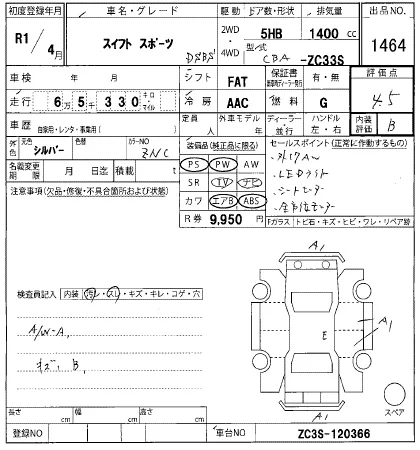 初度登録年月
車名・グレード
駆動
ドア数・形状
排気量
出品NO.
R1
4月
スイフト スポーツ
2WD
4WD
5HB
1400 cc
型/式
CBA -ZC33S
1464
車検 年 月
シフト
FAT
保証書
有・無
評価点
4.5
走行 6万5千330
キロ
マイル
冷房
AAC
燃料
G
車歴
自家用・レンタ・事業用( )
定員
人
外車モデル
年
ディーラー
並行
ハンドル
左・右
内装評価
B
外色
元色
シルバー
色替
カラーNO
ZNC
名義変更期限
月 日迄
積載 t
装備品(純正品に限る)
PS PW AW
SR TV ナビ
カワ エアB ABS
R券 9,950 円
セールスポイント(正常に作動するもの)
LEDライト
シートヒーター
注意事項(欠品・修復・不具合箇所および状態)
Fガラス トビ石・キズ・ヒビ・ワレ・リペア跡
検査員記入
内装 汚レ・スレ・キズ・キレ・コゲ・穴
A/W-A,
キズ, B,
A1
E
A1
A1
スペア
長さ cm
幅 cm
高さ cm
登録NO
車台NO
ZC3S-120366